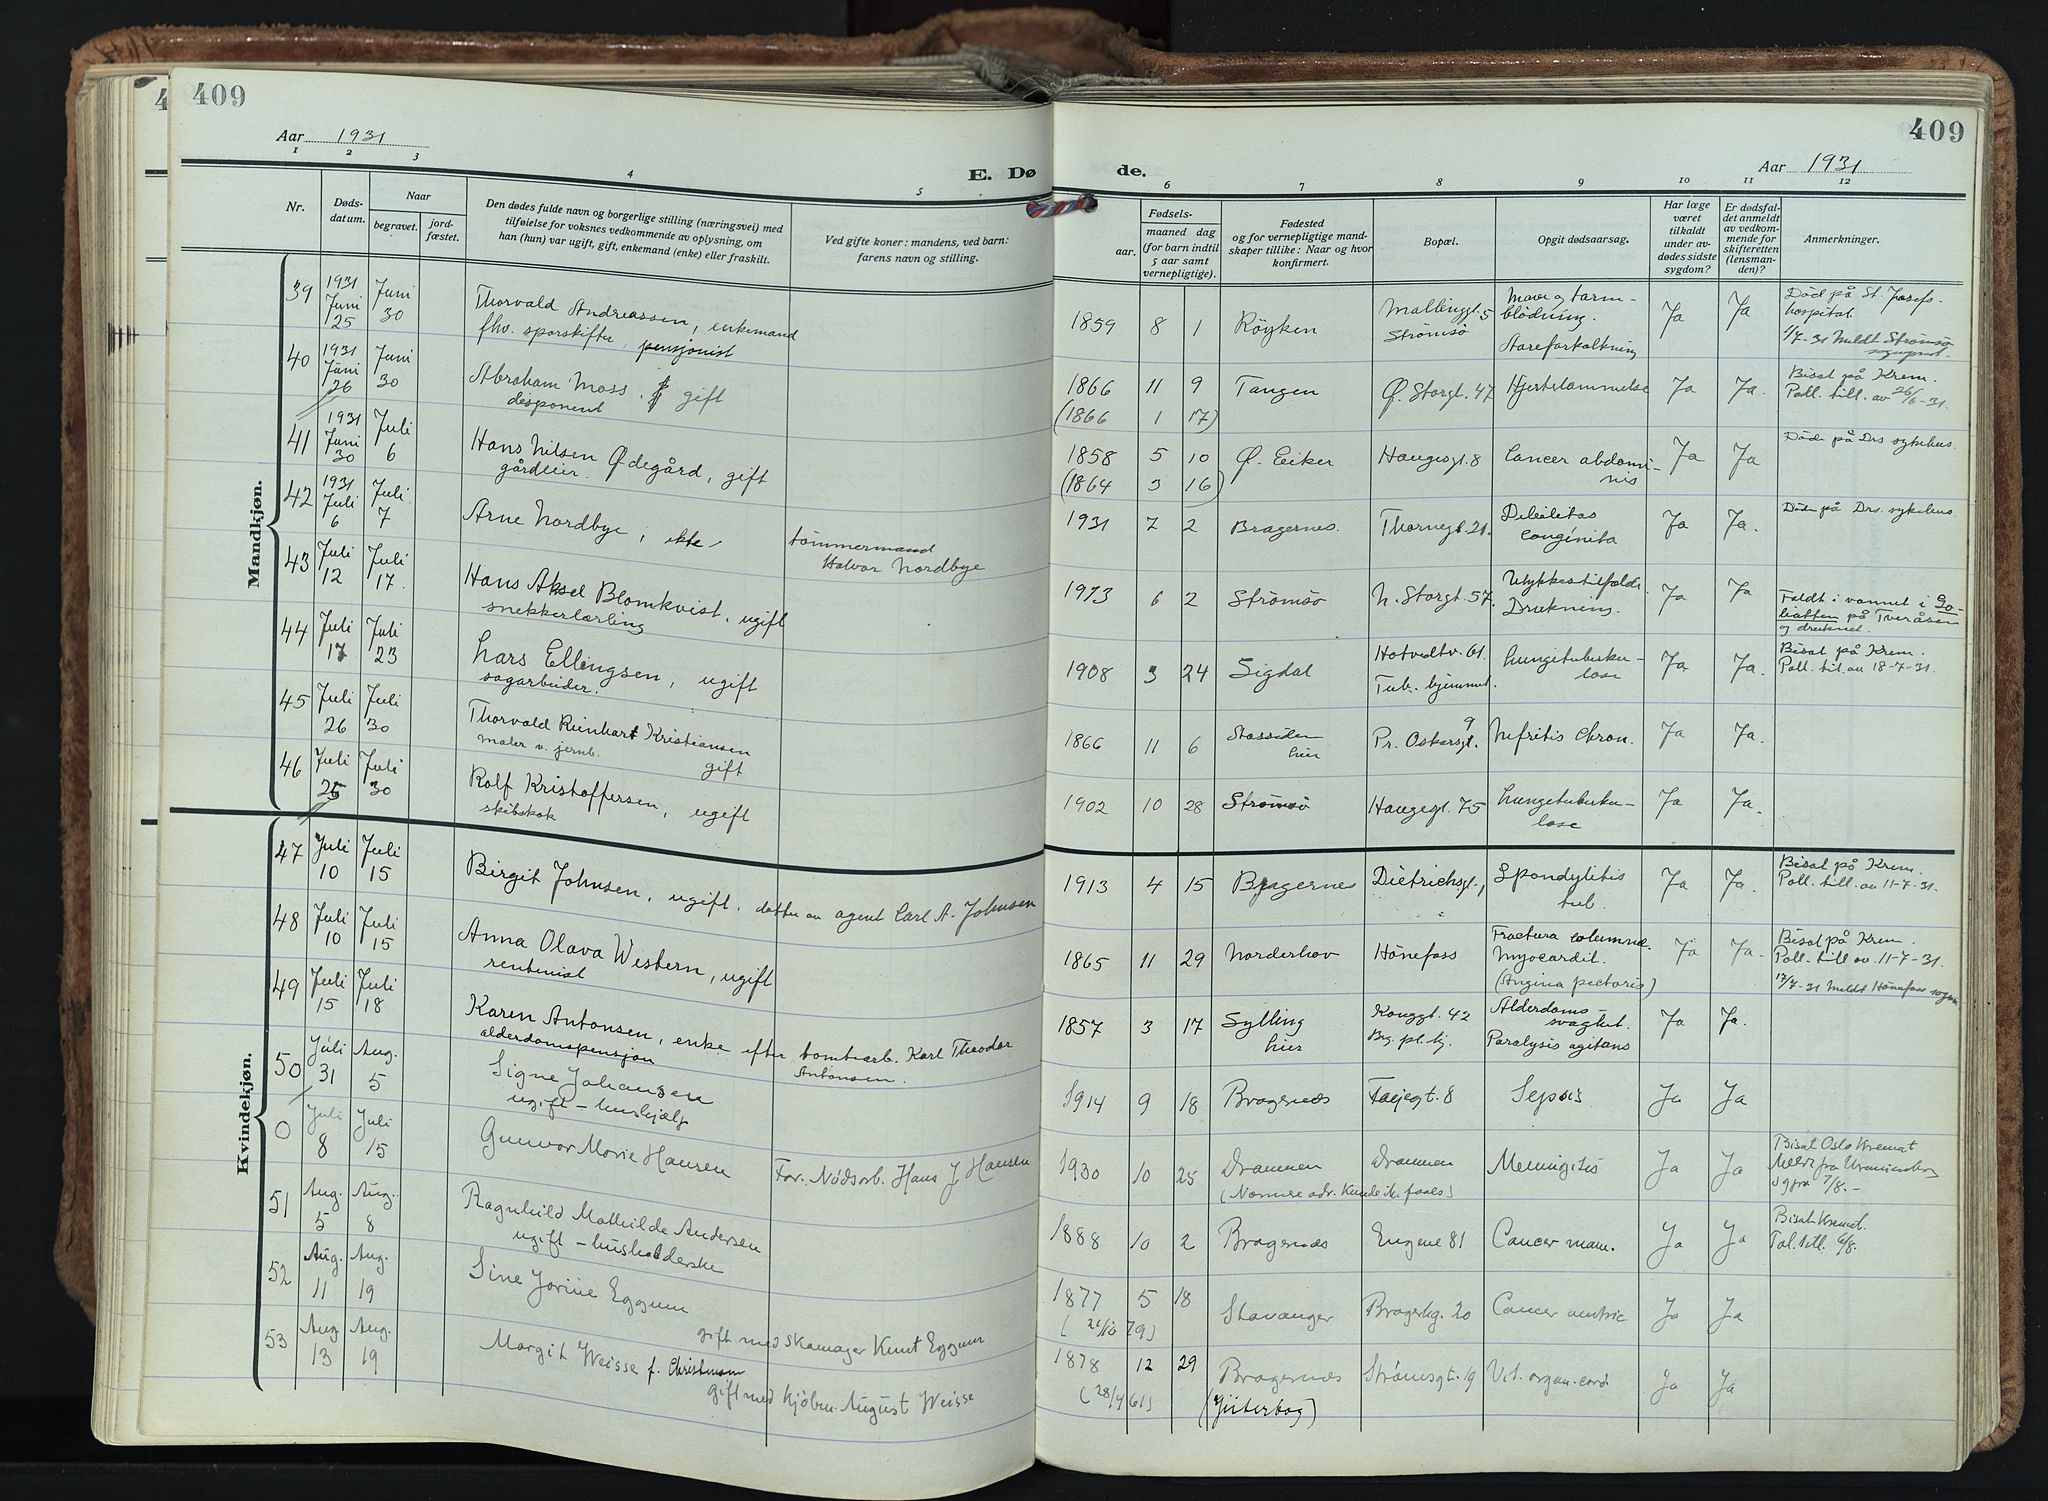 409
Aar 1931
1 2 3 4 5
E. Dø
Nr.
Døds-
datum.
Naar
begravet.
jord-
fæstet.
Den dødes fulde navn og borgerlige stilling (næringsvei) med
tilføielse for voksnes vedkommende av oplysning, om
han (hun) var ugift, gift, enkemand (enke) eller fraskilt.
Ved gifte koner: mandens, ved barn:
farens navn og stilling.
Mandkjøn.
39 1931 Juni 25 Juni 30 Thorvald Andreassen, enkemand
fhv. sporskifter, pensjonist
40 1931 Juni 26 Juni 30 Abraham Moss, gift
disponent
41 1931 Juni 30 Juli 6 Hans Nilsen Ødegård, gift
gårdeier.
42 1931 Juli 6 Juli 7 Arne Nordbye, tømmermand
Halvor Nordbye
43 Juli 12 Juli 17. Hans Aksel Blomkvist, ugift
snekkerlærling
44 Juli 17 Juli 23 Lars Ellingsen, ugift
sagarbeider.
45 Juli 26 Juli 30 Thorvald Reinhart Kristiansen
maler v. jernb. gift
46 Juli 25 Juli 30 Rolf Kristoffersen, ugift
skibskok
Kvindekjøn.
47 Juli 10 Juli 15 Birgit Johnsen, ugift, datter av agent Carl A. Johnsen
48 Juli 10 Juli 15 Anna Olava Western, ugift
rentenist
49 Juli 15 Juli 18 Karen Antonsen, enke efter tomtearb. Karl Theodor
alderdomspensjon Antonsen.
50 Juli 31 Aug. 5 Signe Johansen
ugift - hushjælp
0 Juli 8 Juli 15 Gunvor Marie Hansen For. Nødsarb. Hans J Hansen
51 Aug. 5 Aug. 8 Ragnhild Mathilde Andersen
ugift - husholderske
52 Aug. 11 Aug. 19 Sine Jorine Eggum
gift med skomager Knut Eggum
53 Aug. 13 Aug. 19 Margit Weisse f. Christensen
gift med kjøbm. August Weisse
409
Aar 1931
de.
6 7 8 9 10 11 12
Fødsels-
aar. maaned dag
(for barn indtil
5 aar samt
vernepligtige).
Fødested
og for vernepligtige mand-
skaper tillike: Naar og hvor
konfirmert.
Bopæl.
Opgit dødsaarsag.
Har læge
været
tilkaldt
under av-
dødes sidste
sygdom?
Er dødsfal-
det anmeldt
av vedkom-
mende for
skifteretten
(lensman-
den)?
Anmerkninger.
1859 8 1 Røyken Mallinggt. 5
Strømsø Mave og tarm-
blødning.
Aareforkalkning Ja Ja Død på St. Josefs-
hospital
1/7-31 meldt Strømsø
sogneprest.
1866 11 9 Tangen Ø. Storgt. 47 Hjertelammelse Ja Ja. Bisat på Krem.
Poll. till. av 26/6-31.
(1866 1 17)
1858 5 10 Ø. Eiker Haugesgt. 8 Cancer abdomi-
nis Ja Ja Døde på Drs sykehus.
(1864 3 16)
1931 7 2 Bragernes. Thornegt. 21. Debilitas
conginita Ja Ja. Døde på Drs. sykehus.
1913 6 2 Strømsø N. Storgt. 57. Ulykkestilfælde
Drukning. Ja Ja Faldt i vannet i Go-
liatten på Tveråsen
og druknet.
1908 3 24 Sigdal Hotvedtv. 61.
Tub. hjemmet. Lungetuberku-
lose Ja Ja. Bisat på Krem.
Poll. til. av 18-7-31.
1866 11 6 hier Pr. Oskarsgt. 9 Nefritis chron. Ja Ja.
1902 10 28 Strømsø Haugegt. 75 Lungetuberku-
lose Ja Ja.
1913 4 15 Bragernes Dietrichsgt. 1 Spondylitis
tub. Ja Ja. Bisat på Krem.
Poll. till. av 11-7-31.
1865 11 29 Norderhov Hønefoss Fractura columnæ.
Myocardit.
(Angina pectoris) Ja Ja. Bisat på Krem.
Poll. till av. 11-7-31.
17/7-31 meldt Hønefoss
1857 3 17 Sylling
hier Konggt. 42
Bg. pl. hj. Alderdoms-
svaghet.
Paralysis agitans Ja Ja.
1914 9 18 Bragernes 8 Sepsis Ja Ja
1930 10 25 Drammen Drammen Meningitis Ja Ja Bisat Oslo Kremat
Meldt fra
7/8.-
1888 10 2 Bragernes Engene 81 Cancer mam. Ja Ja Bisat Kremat.
Pol. till. 6/8.
1877 5 18 Stavanger Bragerhg. 20 Cancer Ja Ja
(21/10 79)
1878 12 29 Bragernes Strømsgt. 19 Vit. organ. cord Ja Ja
(28/4 61) (Jüterbog)